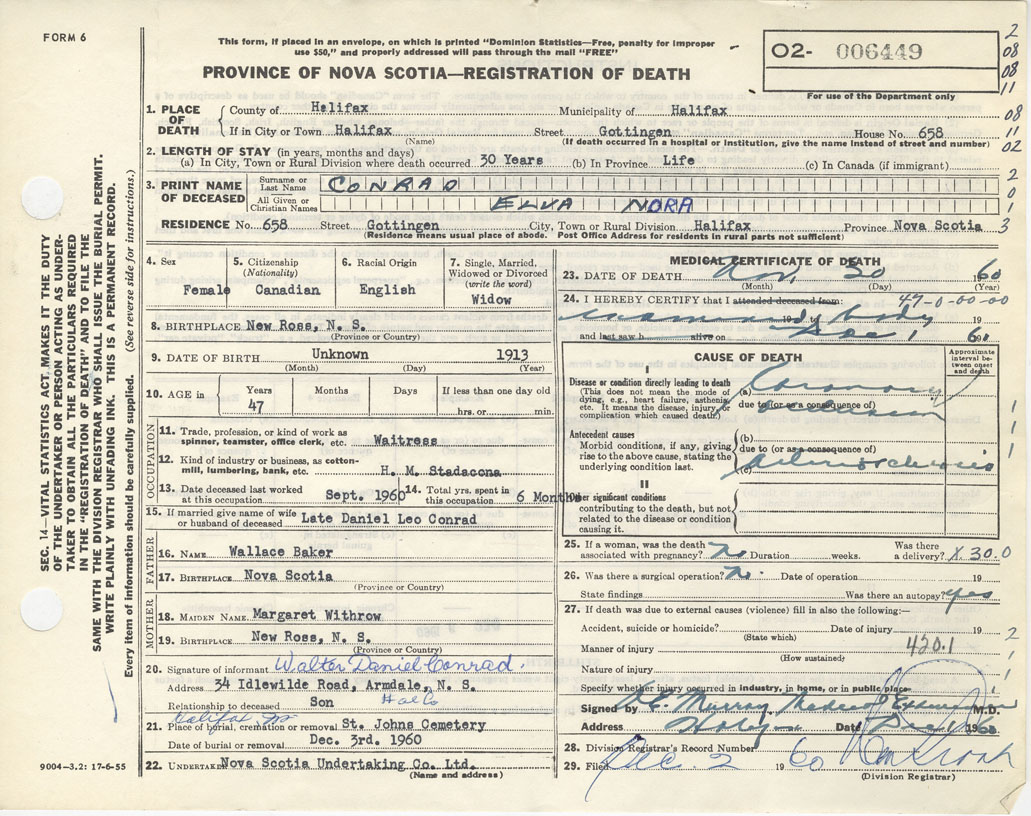 FORM 6
This form, if placed in an envelope, on which is printed "Dominion Statistics—Free, penalty for improper
use $50," and properly addressed will pass through the mail "FREE"
PROVINCE OF NOVA SCOTIA—REGISTRATION OF DEATH
O2- 006449
For use of the Department only
2
08
08
11
08
11
02
2
0
1
3
1. PLACE OF DEATH County of Halifax Municipality of Halifax
If in City or Town Halifax Street Gottingen House No. 658
(Name) (If death occurred in a hospital or Institution, give the name instead of street and number)
2. LENGTH OF STAY (in years, months and days)
(a) In City, Town or Rural Division where death occurred 30 Years (b) In Province Life (c) In Canada (if immigrant)
3. PRINT NAME OF DECEASED Surname or Last Name CONRAD
All Given or Christian Names ELVA NORA
RESIDENCE No. 658 Street Gottingen City, Town or Rural Division Halifax Province Nova Scotia
(Residence means usual place of abode. Post Office Address for residents in rural parts not sufficient)
4. Sex Female
5. Citizenship (Nationality) Canadian
6. Racial Origin English
7. Single, Married, Widowed or Divorced (write the word) Widow
8. BIRTHPLACE New Ross, N. S.
(Province or Country)
9. DATE OF BIRTH Unknown 1913
(Month) (Day) (Year)
10. AGE in Years 47 Months Days If less than one day old hrs. or min.
OCCUPATION
11. Trade, profession or kind of work as spinner, teamster, office clerk, etc. Waitress
12. Kind of industry or business, as cotton-mill, lumbering, bank, etc. H. M. Stadacona
13. Date deceased last worked at this occupation Sept. 1960
14. Total yrs. spent in this occupation 6 Months
15. If married give name of wife or husband of deceased Late Daniel Leo Conrad
FATHER
16. NAME Wallace Baker
17. BIRTHPLACE Nova Scotia
(Province or Country)
MOTHER
18. MAIDEN NAME Margaret Withrow
19. BIRTHPLACE New Ross, N. S.
(Province or Country)
20. Signature of informant Walter Daniel Conrad
Address 34 Idlewilde Road, Armdale, N. S.
Hal Co
Relationship to deceased Son
21. Place of burial, cremation or removal St. Johns Cemetery
Halifax
Date of burial or removal Dec. 3rd. 1960
22. UNDERTAKER Nova Scotia Undertaking Co. Ltd.
(Name and address)
MEDICAL CERTIFICATE OF DEATH
23. DATE OF DEATH Nov. 30 1960
(Month) (Day) (Year)
24. I HEREBY CERTIFY that I attended deceased from: 47-0-00-00
examined body
and last saw h alive on Dec 1 60
CAUSE OF DEATH
Approximate interval between onset and death
I
Disease or condition directly leading to death
(This does not mean the mode of dying, e.g., heart failure, asthenia, etc. It means the disease, injury, or complication which caused death.)
(a) Coronary
due to (or as a consequence of)
Antecedent causes
Morbid conditions, if any, giving rise to the above cause, stating the underlying condition last.
(b)
due to (or as a consequence of)
(c) arteriosclerosis
II
Other significant conditions
contributing to the death, but not related to the disease or condition causing it.
1
1
1
25. If a woman, was the death associated with pregnancy? No Duration weeks. Was there a delivery? X 30.0
26. Was there a surgical operation? No. Date of operation 19
State findings Was there an autopsy? yes
27. If death was due to external causes (violence) fill in also the following:—
Accident, suicide or homicide? Date of injury 19
(State which)
Manner of injury 420.1
(How sustained)
Nature of injury
2
1
1
Specify whether injury occurred in industry, in home, or in public place
Signed by Murray Medical Examiner M.D.
Address Date Dec 1 1960
28. Division Registrar's Record Number
29. Filed Dec 2 1960
(Division Registrar)
9004-3.2: 17-6-55
SEC. 14—VITAL STATISTICS ACT, MAKES IT THE DUTY
OF THE UNDERTAKER OR PERSON ACTING AS UNDER-
TAKER TO OBTAIN ALL THE PARTICULARS REQUIRED
IN THE "REGISTRATION OF DEATH" AND TO FILE THE
SAME WITH THE DIVISION REGISTRAR WHO SHALL ISSUE THE BURIAL PERMIT.
WRITE PLAINLY WITH UNFADING INK. THIS IS A PERMANENT RECORD.
Every item of information should be carefully supplied. (See reverse side for instructions.)